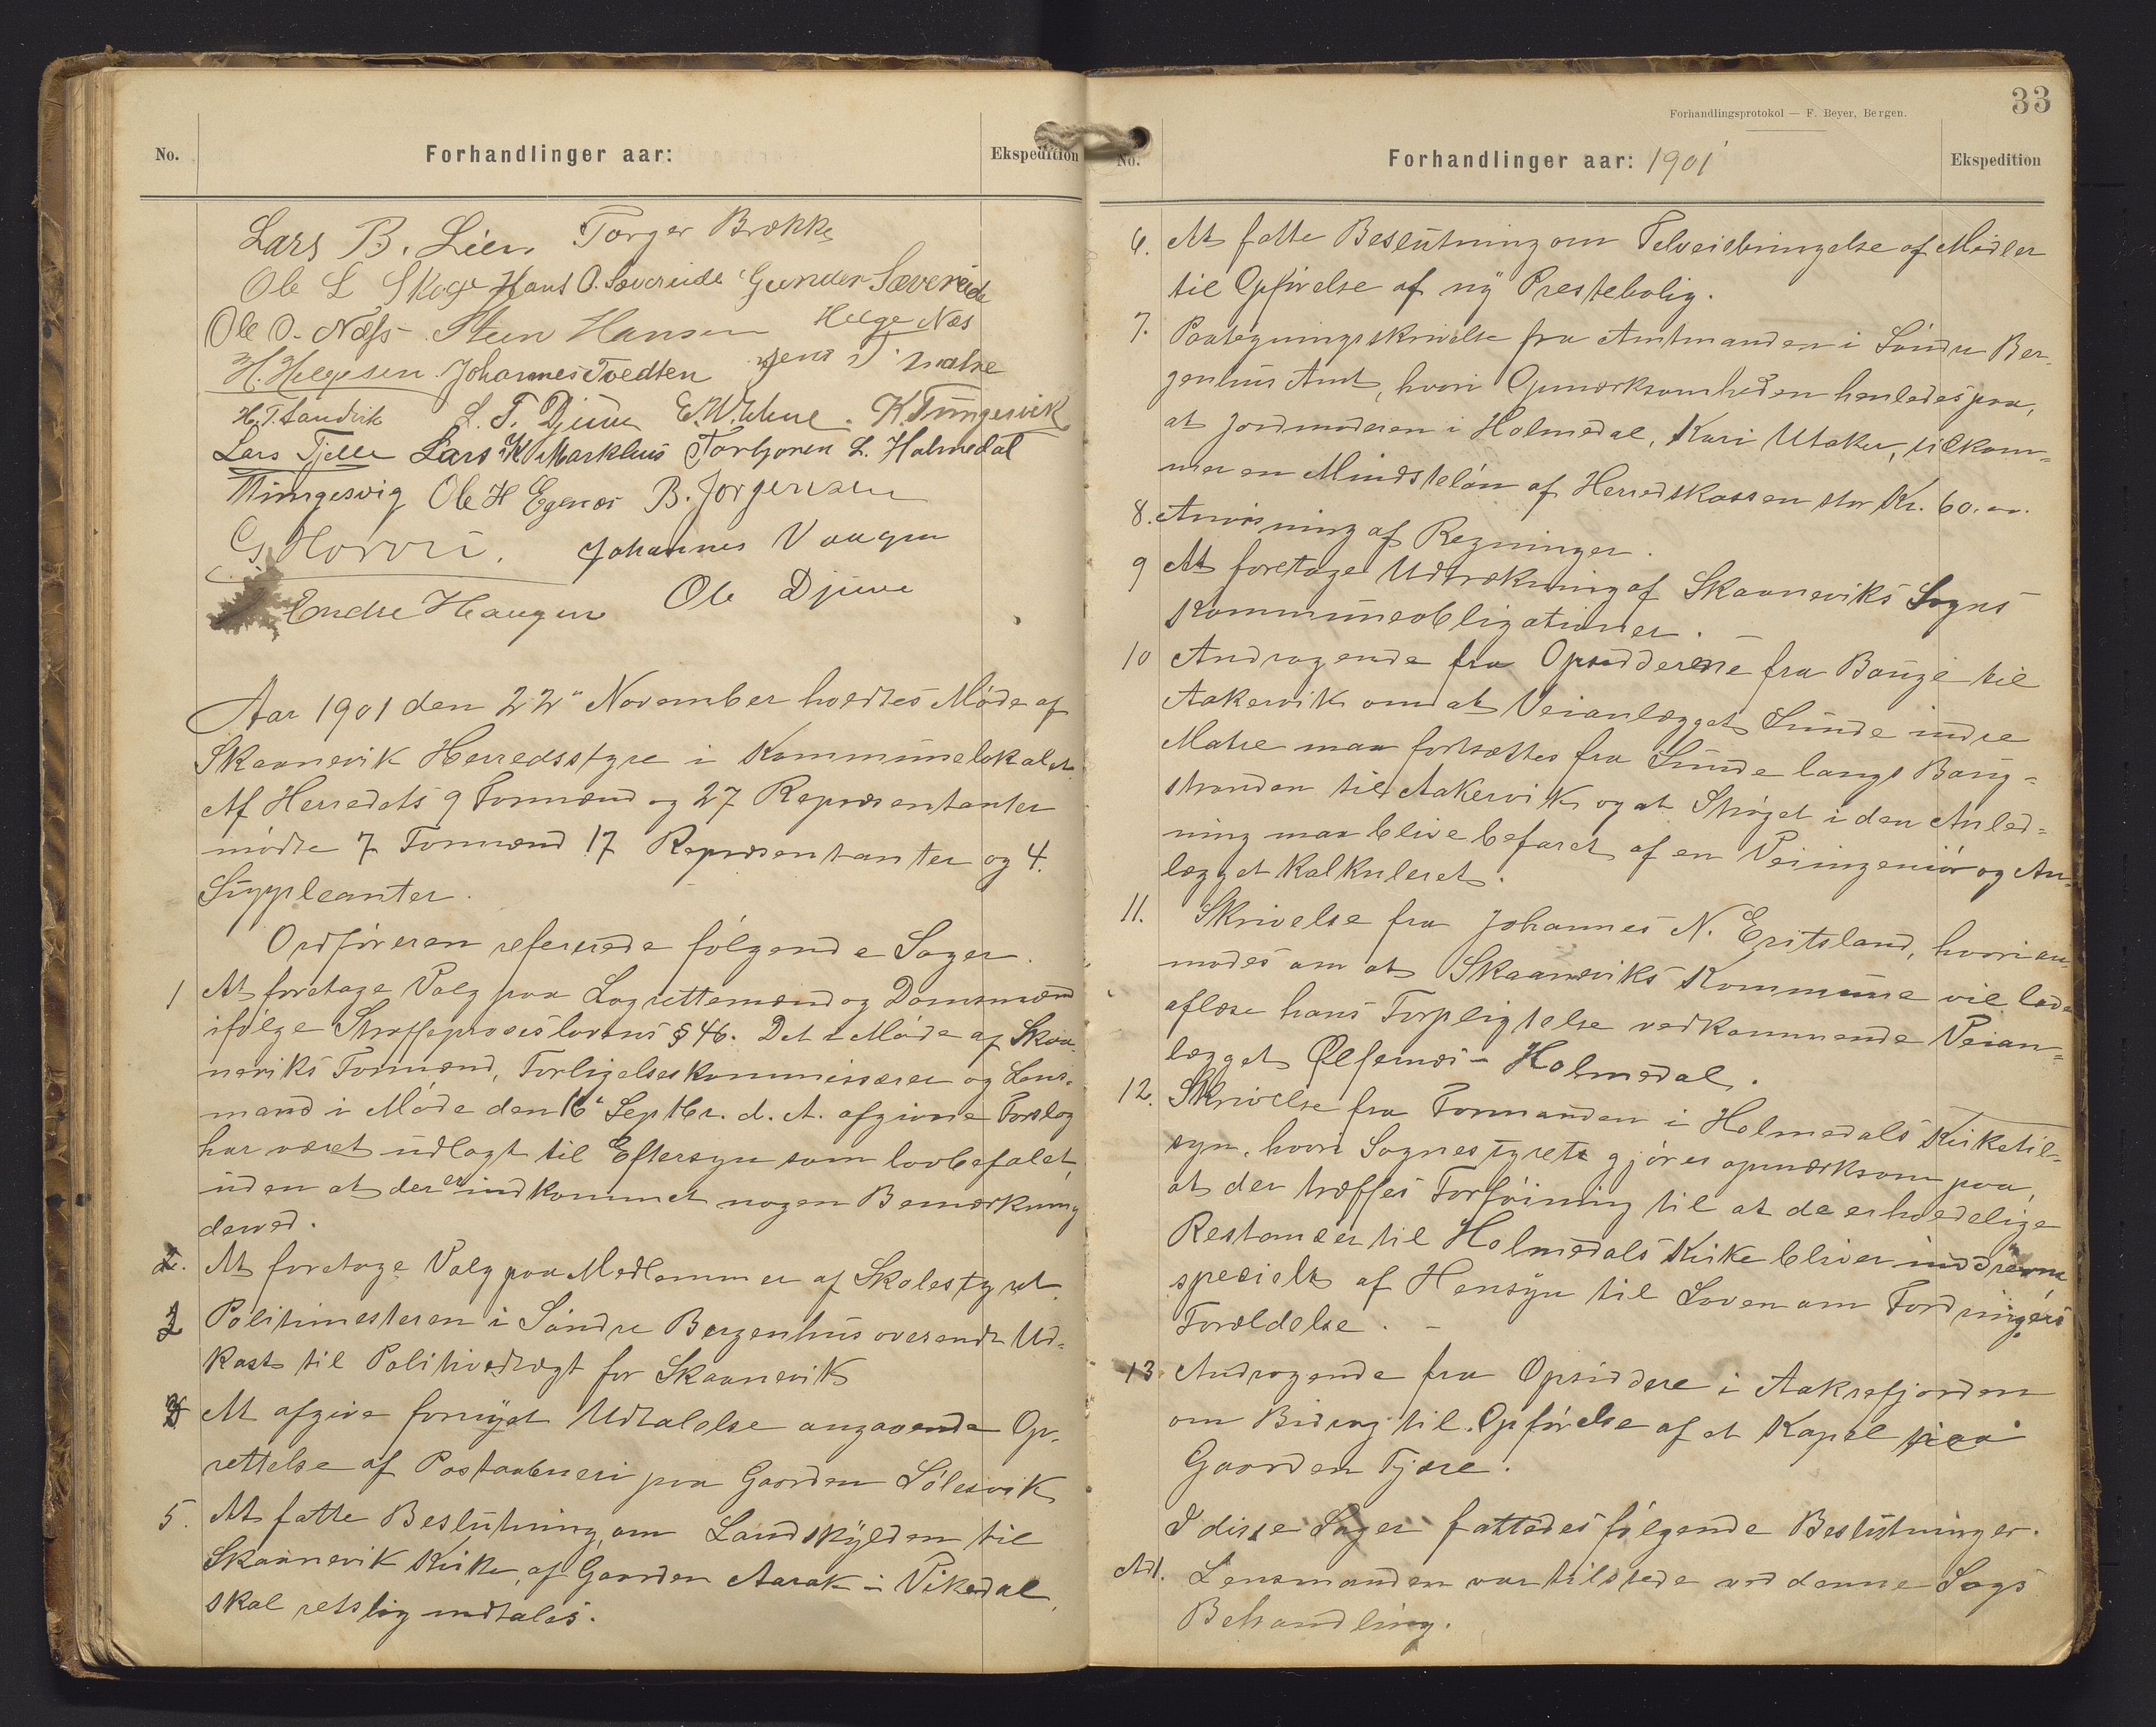 No.
Forhandlinger aar:
Ekspedition
Lars B. Lien Torger Brekke
Ole L Skoge Hans O. Sævereide Gunder Sævereide
Ole O. Næss Steen Hansen Helge Næs
H. Helgesen Johannes Tvedten Jens
H. T. Sandvik L. T. Djuve E. W. K. Tungesvik
Lars Fjelle Lars K Markhus Torbjørn L. Holmedal
Tungesvig Ole H Egenæs B. Jørgensen
G. Horvei. Johannes Vaagen
Endre Haugen Ole Djuve
Aar 1901 den 22de November holdtes Møde af
Skaanevik Herredsstyre i Kommunelokalet.
Af Herredets 9 Formænd og 27 Repræsentanter
mødte 7 Formænd 17 Repræsentanter og 4.
Suppleanter.
Ordføreren refererede følgende Sager.
1 At foretage Valg paa Lagrettemænd og Domsmænd
ifølge Straffeproceslovens § 46. Det i Møde af Skaa-
neviks Formænd, Forligelseskommissærer og Lens-
mand i Møde den 16de Septbr. d. A. afgivne Forslag
har været udlagt til Eftersyn som lovbefalet,
uden at der er indkommet nogen Bemærkning
derved.
2. At foretage Valg paa Medlemmer af Skolestyret.
3 Politimesteren i Søndre Bergenhus oversendt Ud-
kast til Politivedtægt for Skaanevik
4 At afgive fornyet Udtalelse angaaende Op-
rettelse af Postaabneri paa Gaarden Sølesvik
5. At fatte Beslutning om Landskylden til
Skaanevik Kirke, af Gaarden Aarak i Vikedal,
skal retslig indtales.
33
Forhandlingsprotokol — F. Beyer, Bergen.
No.
Forhandlinger aar: 1901
Ekspedition
6. At fatte Beslutning om Tilveiebringelse af Midler
til Opførelse af ny Prestebolig.
7. Paategningsskrivelse fra Amtmanden i Søndre Ber-
genhus Amt, hvori Opmærksomheden henledes paa,
at Jordmoderen i Holmedal, Kari Utaker, tilkom-
mer en Mindsteløn af Herredskassen stor Kr. 60.00.
8. Anvisning af Regninger.
9 At foretage Udtrækning af Skaaneviks Sogns
Kommuneobligationer.
10 Andragende fra Opsidderene fra Bauge til
Aakervik om at Veianlægget Sunde indre
Matre maa fortsættes fra Sunde langs Baug-
stranden til Aakervik og at Strøget i den Anled-
ning maa blive befaret af en Veiingeniør og An-
lægget kalkuleret.
11. Skrivelse fra Johannes N. Eritsland, hvori an-
modes om at Skaaneviks Kommune vil lade
afløse hans Forpligtelse vedkommende Veian-
lægget Ølfernæs - Holmedal.
12. Skrivelse fra Formanden i Holmedals Kirketil-
syn, hvori Sognestyret gjøres opmærksom paa,
at der træffes Forføining til at de erholdelige
Restancer til Holmedals Kirke bliver inddrevne
specielt af Hensyn til Loven om Fordringers
Forældelse. -
13 Andragende fra Opsiddere i Aakrefjorden
om Bidrag til Opførelse af et Kapel paa
Gaarden Fjære.
I disse Sager fattedes følgende Beslutninger.
Ad 1. Lensmanden var tilstede ved denne Sags
Behandling.